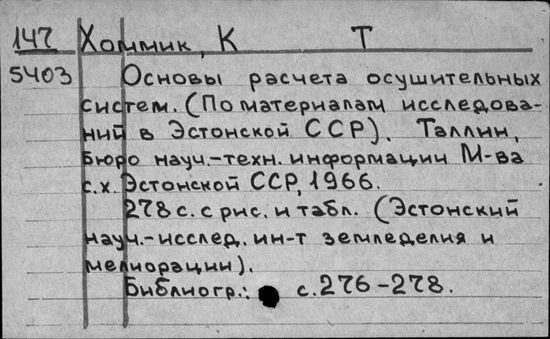 147 Хоммик, К Т
5403 Основы расчета осушительных
систем. (По материалам исследова-
ний в Эстонской ССР). Таллин,
Бюро науч.-техн. информации М-ва
с.х. Эстонской ССР, 1966.
278 с. с рис. и табл. (Эстонский
науч.-исслед. ин-т земледелия и
мелиорации).
Библиогр.: с. 276-278.